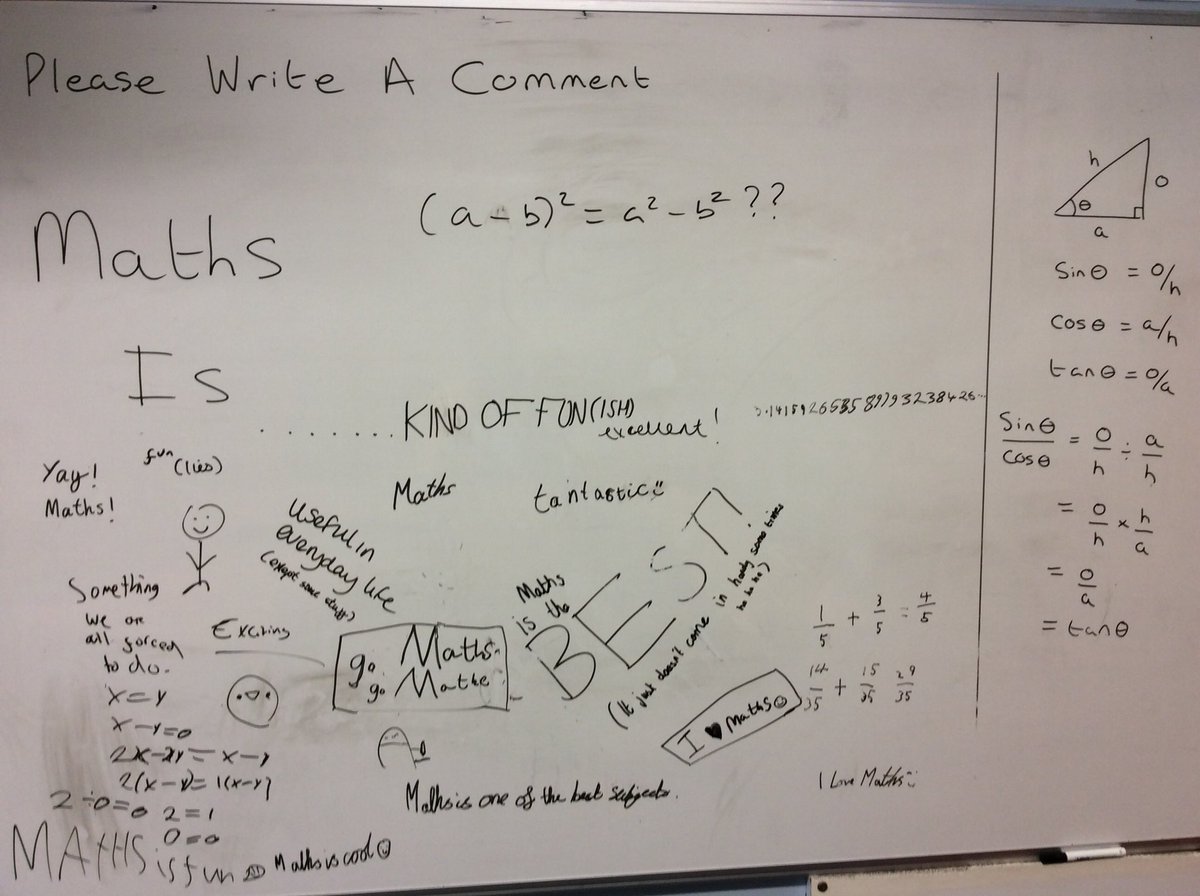 Please Write A Comment
(a - b)² = a² - b² ??
Maths
Is
........ KIND OF FUN (ISH)
excellent!
3.141592653589793238426...
fun (lies)
Yay!
Maths!
Maths
tantastic
Useful in
everyday life
(except some stuff)
Something
we are
all forced
to do.
Exciting
x = y
x - y = 0
2x - 2y = x - y
2(x - y) = 1(x - y)
2 ÷ 0 = 0
2 = 1
0 = 0
go Maths
go Mathe
Maths
is the
BEST!
(It just doesn't come in handy some times
ha ha ha)
I ♥ Maths
1/5 + 3/5 = 4/5
14/35 + 15/35 29/35
Maths is one of the best subjects.
I Love Maths
MATHS is fun
Maths is cool
h
o
θ
a
Sin θ = o/h
Cos θ = a/h
tan θ = o/a
Sin θ / Cos θ = o/h ÷ a/h
= o/h × h/a
= o/a
= tan θ